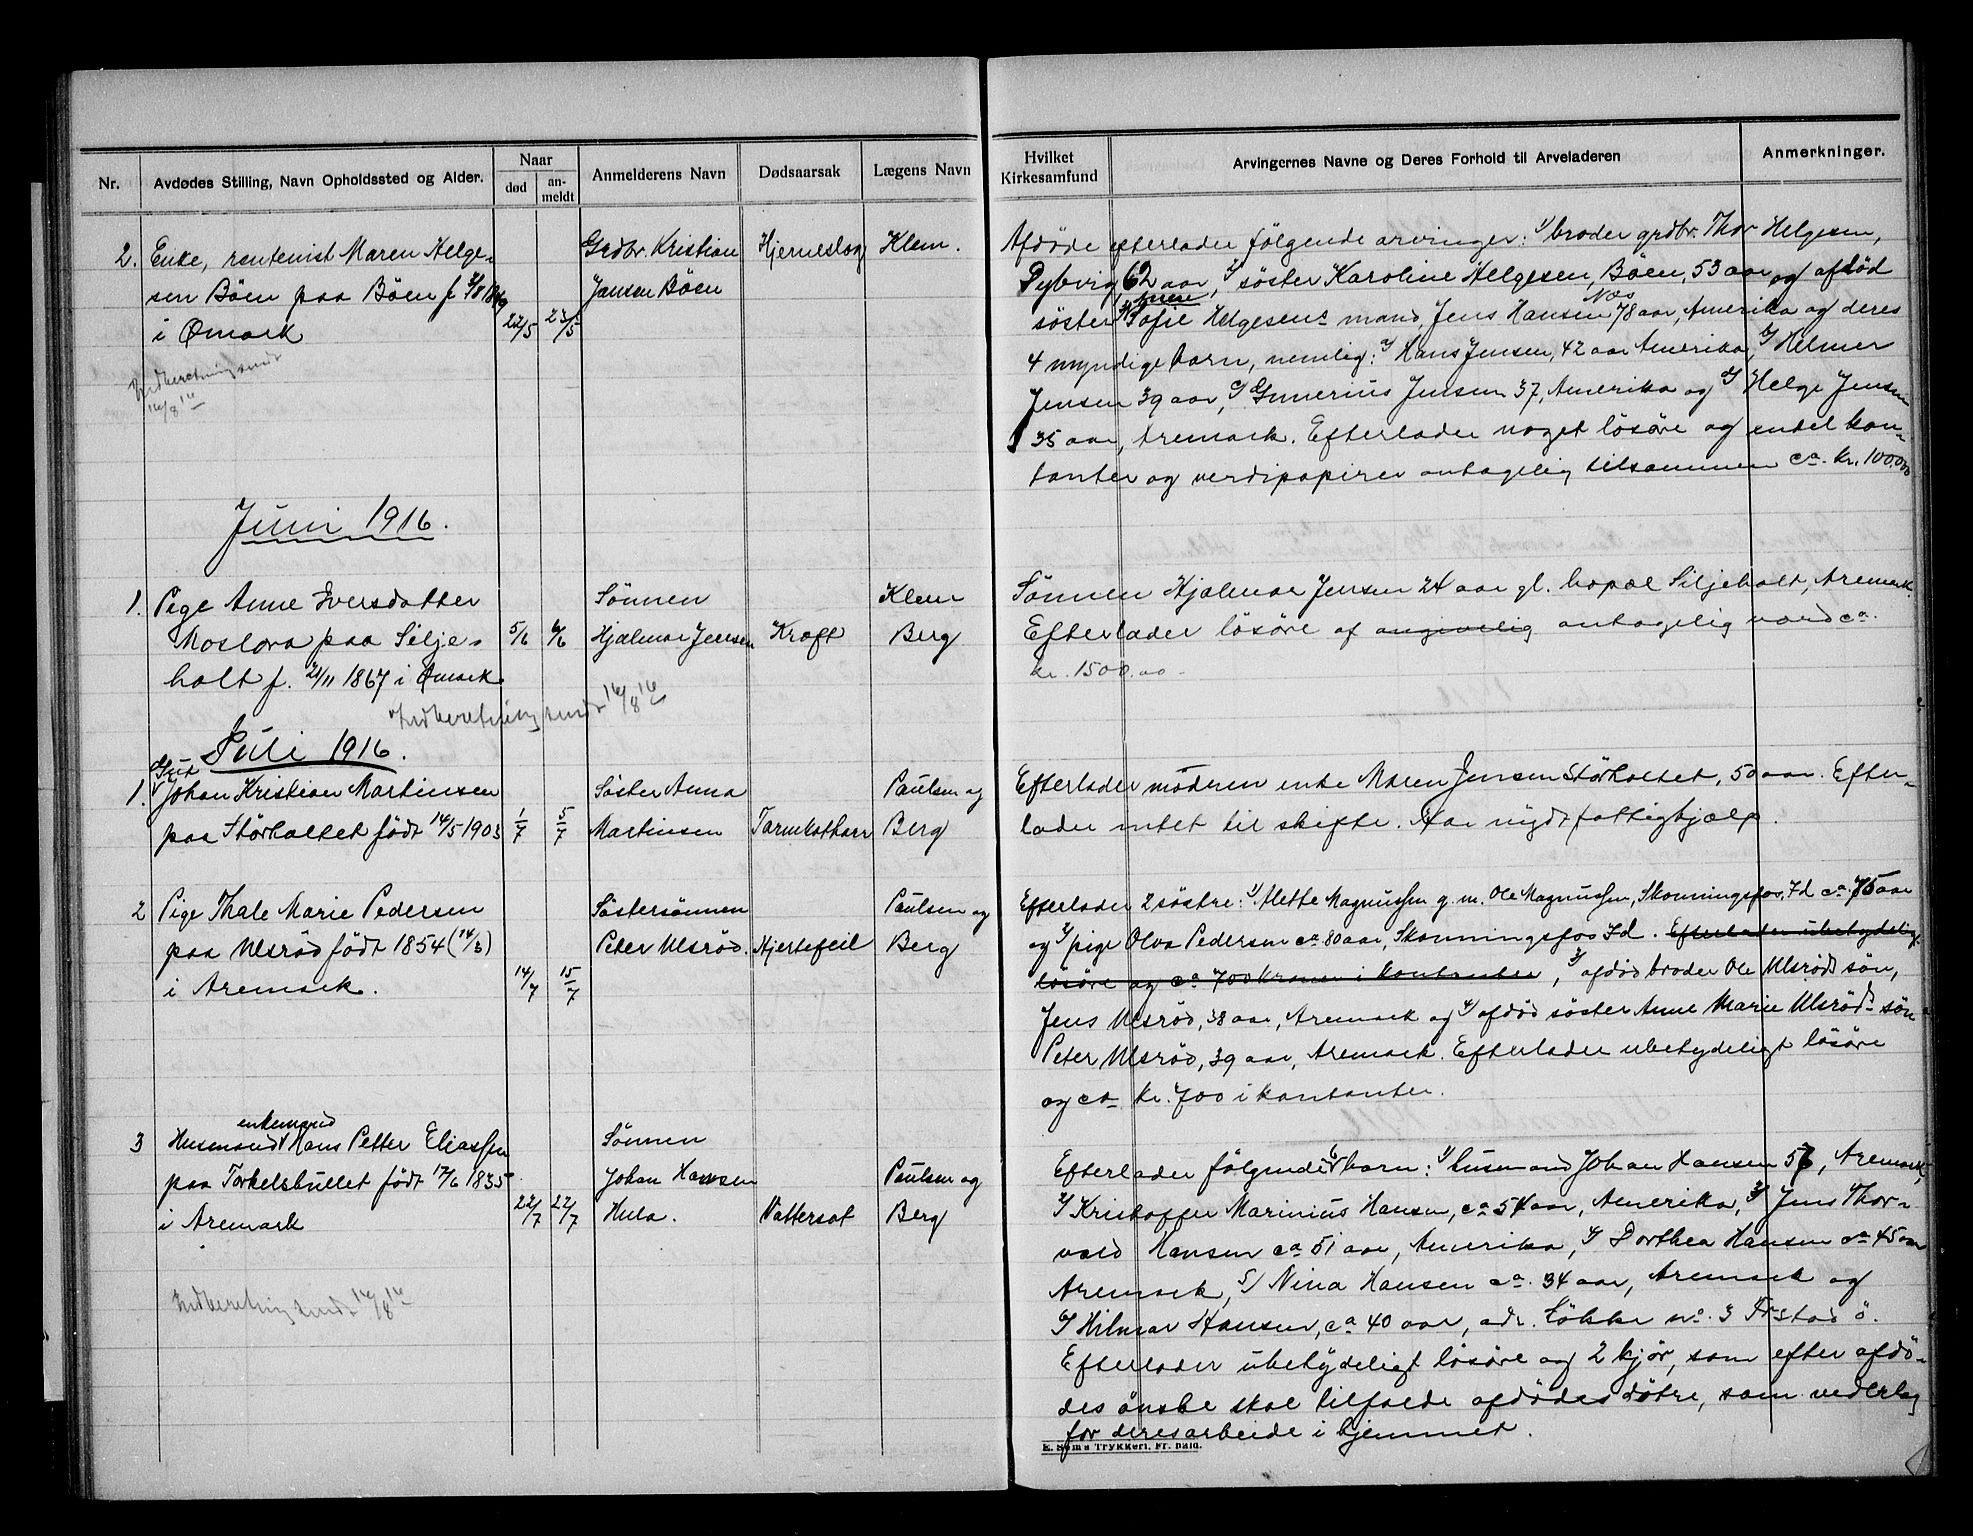 Nr.
Avdødes Stilling, Navn Opholdssted og Alder.
Naar
død
an-
meldt
Anmelderens Navn
Dødsaarsak
Lægens Navn
Hvilket
Kirkesamfund
Arvingernes Navne og Deres Forhold til Arveladeren
Anmerkninger.
2. Enke, rentenist Maren Helge-
sen Böen paa Böen f.
i Ømark
22/5 23/5
Grdbr. Kristian
Jansen Böen
Hjerneslag
Klem.
Afdöde efterlader fölgende arvinger: 1/ broder grdbr. Thor Helgesen,
Dybvig 62 aar, 2/ söster Karoline Helgesen, Böen, 53 aar og afdöd
söster Sofie Helgesens mand, Jens Hansen Næs 78 aar, Amerika og deres
4 myndige barn, nemlig: Hans Jensen, 42 aar Amerika, Helmer
Jensen 39 aar, Gunerius Jensen 37, Amerika og Helge Jensen
35 aar, Aremark. Efterlader noget lösöre og endel kon-
tanter og verdipapirer antagelig tilsammen ca. kr. 100.000
Indberetning sendt
16/8 16
Juni 1916.
1. Pige Anne Iversdatter
Moslora paa Silje-
holt f. 21/11 1867 i Ømark
5/6 6/6
Sönnen
Hjalmar Jensen
Kræft
Klem
Berg
Sönnen Hjalmar Jensen 24 aar gl. bopæl Siljeholt, Aremark.
Efterlader lösöre af angivelig antagelig værd ca.
kr. 1500.00
Indberetning sendt 16/8 16
Juli 1916.
1. Gut Johan Kristian Martinsen
paa Störholtet födt 14/5 1903
1/7 5/7
Söster Anna
Martinsen
Tarmkatharr
Paulsen og
Berg
Efterlader moderen enke Maren Jensen Störholtet, 50 aar. Efter-
lader intet til skifte. Har nydt fattighjælp.
2 Pige Thale Marie Pedersen
paa Ulsröd födt 1854 (14/3)
i Aremark.
14/7 15/7
Söstersönnen
Peter Ulsröd.
Hjertefeil
Paulsen og
Berg
Efterlader 2 söstre: 1/ Alette Magnussen g. m. Ole Magnussen, Skonningsfos, Id ca. 75 aar
og 2/ pige Olva Pedersen ca 80 aar, Skonningsfos Id. Efterlader ubetydelig
lösöre og ca 700 kroner i kontanter, 3/ afdöd broder Ole Ulsröds sön,
Jens Ulsröd, 38 aar, Aremark og 4/ afdöd söster Anne Marie Ulsröds sön
Peter Ulsröd, 39 aar, Aremark. Efterlader ubetydeligt lösöre
og ca kr. 700 i kontanter.
3 Husmand enkemand Hans Petter Eliassen
paa Torkelsbullet födt 17/6 1835
i Aremark
22/7 22/7
Sönnen
Johan Hansen
Hula.
Vattersot
Paulsen og
Berg
Efterlader fölgende 6 barn: 1/ husmand Johan Hansen 56, Aremark,
2/ Kristoffer Marinius Hansen, ca 54 aar, Amerika, 3/ Jens Thor-
vald Hansen ca 51 aar, Amerika, 4/ Dorthea Hansen ca 45 aar
Aremark, 5/ Nina Hansen ca. 34 aar, Aremark og
6/ Hilmar Hansen, ca 40 aar, adr. Lökke no. 3 Frstad ö.
Efterlader ubetydeligt lösöre og 2 kjör, som efter afdö-
des önske skal tilfalde afdödes dötre, som vederlag
for deres arbeide i hjemmet.
Indberetning sendt 16/8 16